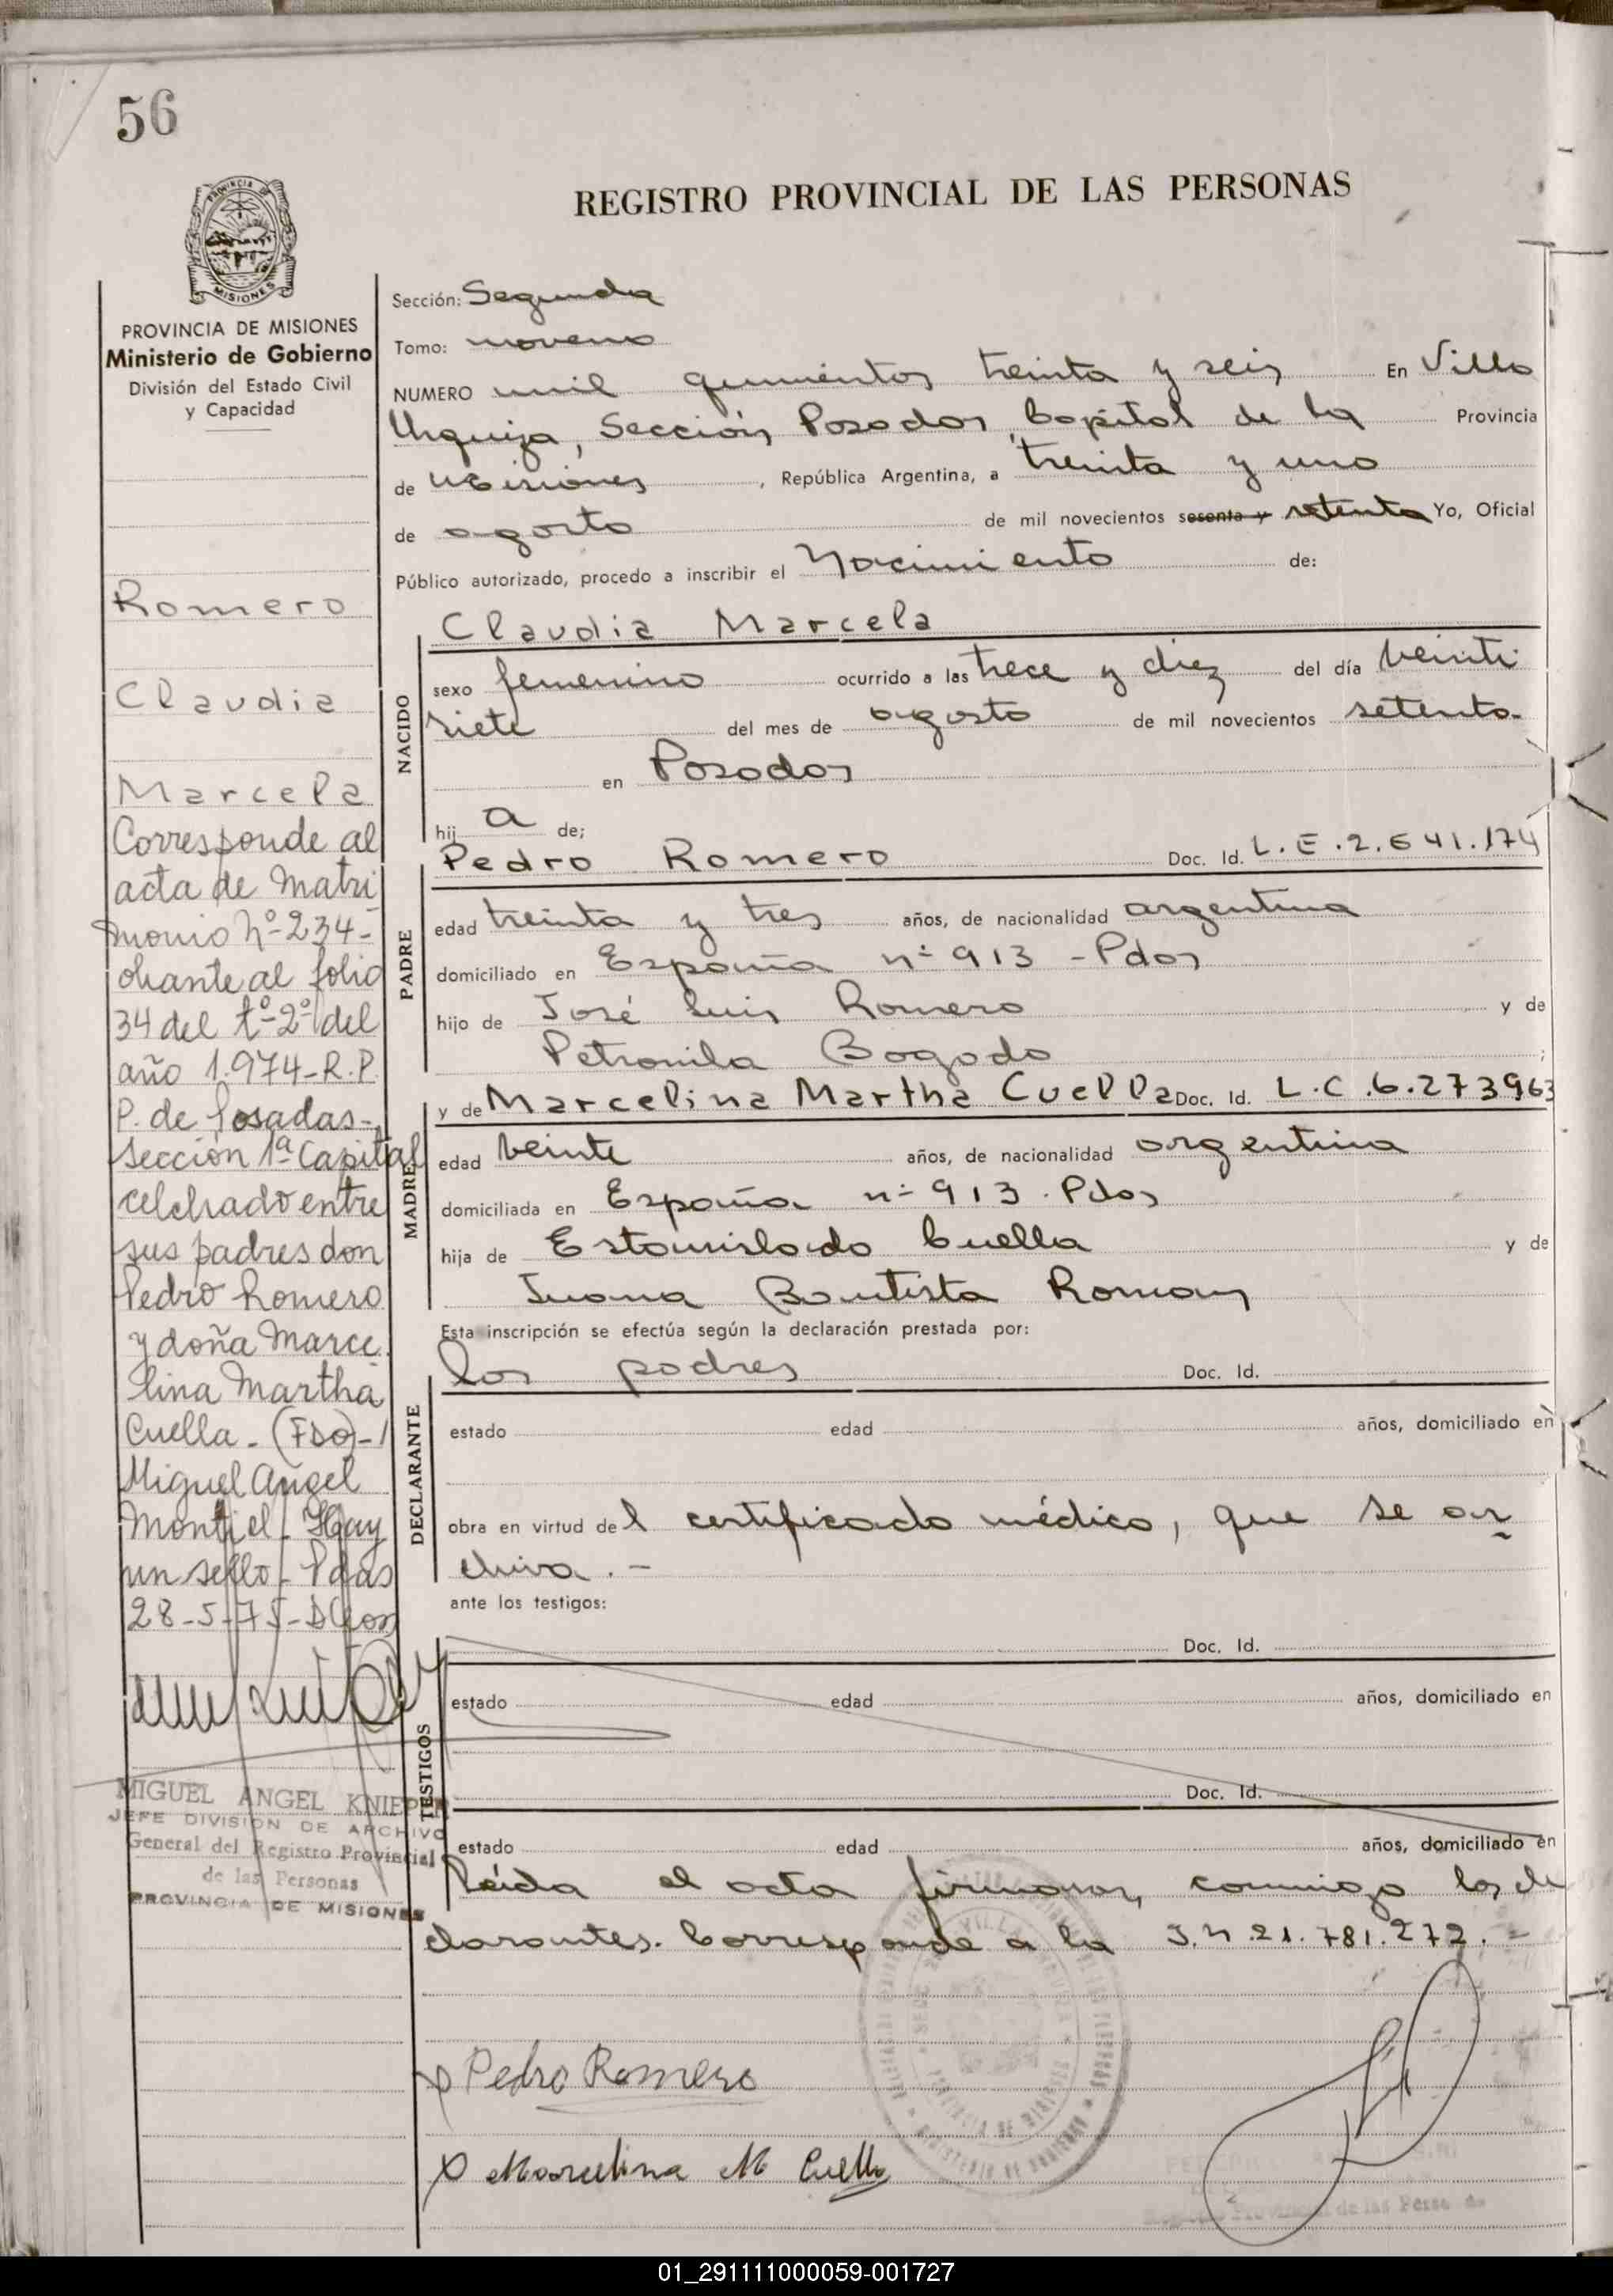 56
REGISTRO PROVINCIAL DE LAS PERSONAS
PROVINCIA DE
MISIONES
PROVINCIA DE MISIONES
Ministerio de Gobierno
División del Estado Civil
y Capacidad
Romero
Claudia
Marcela
Corresponde al
acta de Matri
monio Nº 234-
obrante al folio
34 del tº-2º del
año 1.974-R.P.
P. de Posadas-
Sección 1ª Capital
celebrado entre
sus padres don
Pedro Romero
y doña Marce
lina Martha
Cuella - (FDO)-
Miguel Angel
Montiel - Hay
un sello - Pdas
28-5-75-
MIGUEL ANGEL KNIEPP
JEFE DIVISION DE ARCHIVO
General del Registro Provincial
de las Personas
PROVINCIA DE MISIONES
Sección: Segunda
Tomo: noveno
NUMERO mil quinientos treinta y seis En Villa
Urquiza, Sección Posadas, Capital de la Provincia
de Misiones, República Argentina, a treinta y uno
de agosto de mil novecientos sesenta y setenta Yo, Oficial
Público autorizado, procedo a inscribir el Nacimiento de:
Claudia Marcela
NACIDO
sexo femenino ocurrido a las trece y diez del día veinti
siete del mes de agosto de mil novecientos setenta-
en Posadas
hij a de;
Pedro Romero Doc. Id. L.E.2.641.174
PADRE
edad treinta y tres años, de nacionalidad argentina
domiciliado en España nº 913 - Pdas
hijo de José Luis Romero y de
Petronila Bogado ;
y de Marcelina Martha Cuella Doc. Id. L.C.6.273963
MADRE
edad veinte años, de nacionalidad argentina
domiciliada en España nº 913. Pdas
hija de Estanislado Cuella y de
Juana Bautista Roman
Esta inscripción se efectúa según la declaración prestada por:
los padres Doc. Id.
DECLARANTE
estado edad años, domiciliado en
obra en virtud del certificado médico, que se ar
chiva.-
ante los testigos:
Doc. Id.
TESTIGOS
estado edad años, domiciliado en
Doc. Id.
estado edad años, domiciliado en
Leída el acta firman, conmigo los de
clarantes. Corresponde a la I.N.21.781.272.-
Pedro Romero
Marcelina M Cuella
01_291111000059-001727